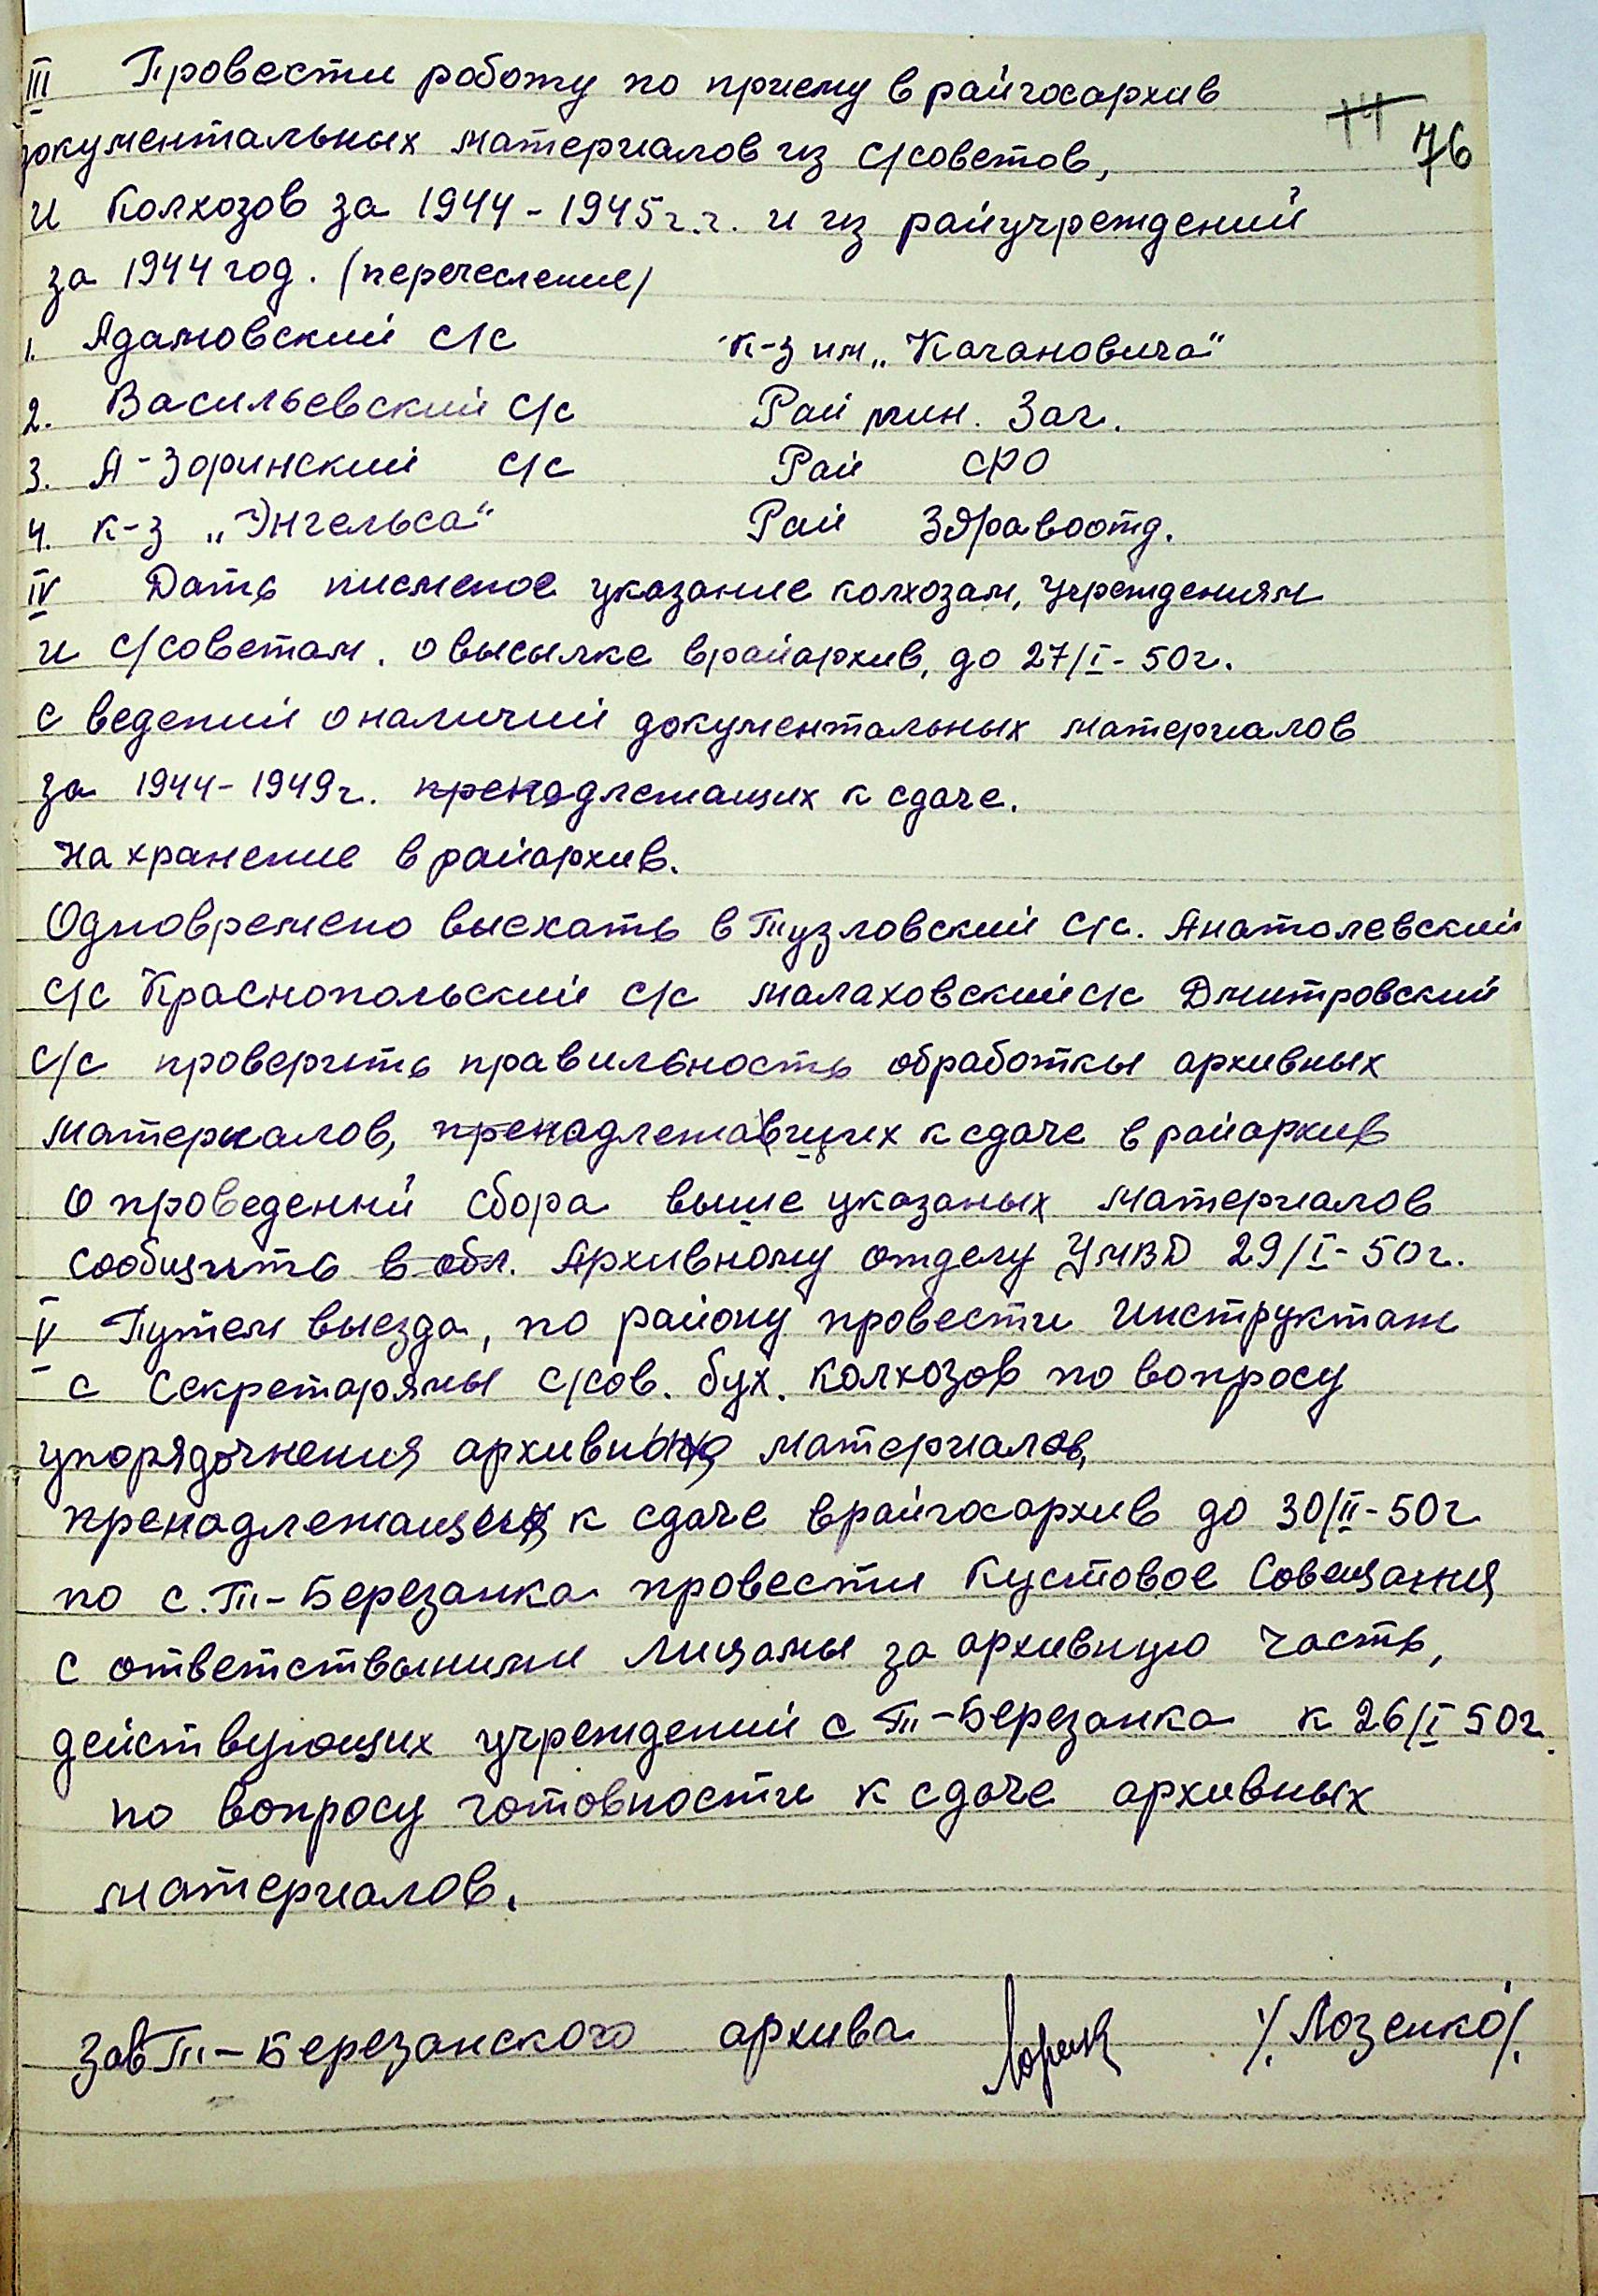 III Провести роботу по приему в райгосархив
77 76
документальных материалов из с/советов,
и колхозов за 1944-1945г.г. и из райучреждений
за 1944 год. (перечесление)
1. Адамовский с/с к-з им „Кагановича“
2. Васильевский с/с Рай мин. Заг.
3. А-Зоринский с/с Рай СРО
4. к-з „Энгельса“ Рай Здравоотд.
IV Дать писменое указание колхозам, учреждениям
и с/советам. о высылке в райархив, до 27/I-50г.
с ведений о наличий документальных материалов
за 1944-1949г. пренадлежащих к сдаче.
на хранение в райархив.
Одновремено выехать в Тузловский с/с. Анатолевский
с/с Краснопольский с/с Малаховский с/с Дмитровский
с/с проверить правильность обработкы архивных
материалов, пренадлежавщих к сдаче в райархив
О проведений сбора выше указаных материалов
сообщить в обл. Архивному отделу УМВД 29/I-50г.
V Путем выезда, по району провести инструктаж
с Секретарямы с/сов. бух. колхозов по вопросу
упорядочнения архивных материалов,
пренадлежащих к сдаче в райгосархив до 30/II-50г
по с. Т-Березанка провести Кустовое Совещания
с ответственими лицамы за архивную часть,
действующих учреждений с Т-Березанка к 26/I 50г.
по вопросу готовности к сдаче архивных
материалов.
Зав Т-Березанского архива /Лозенко/.